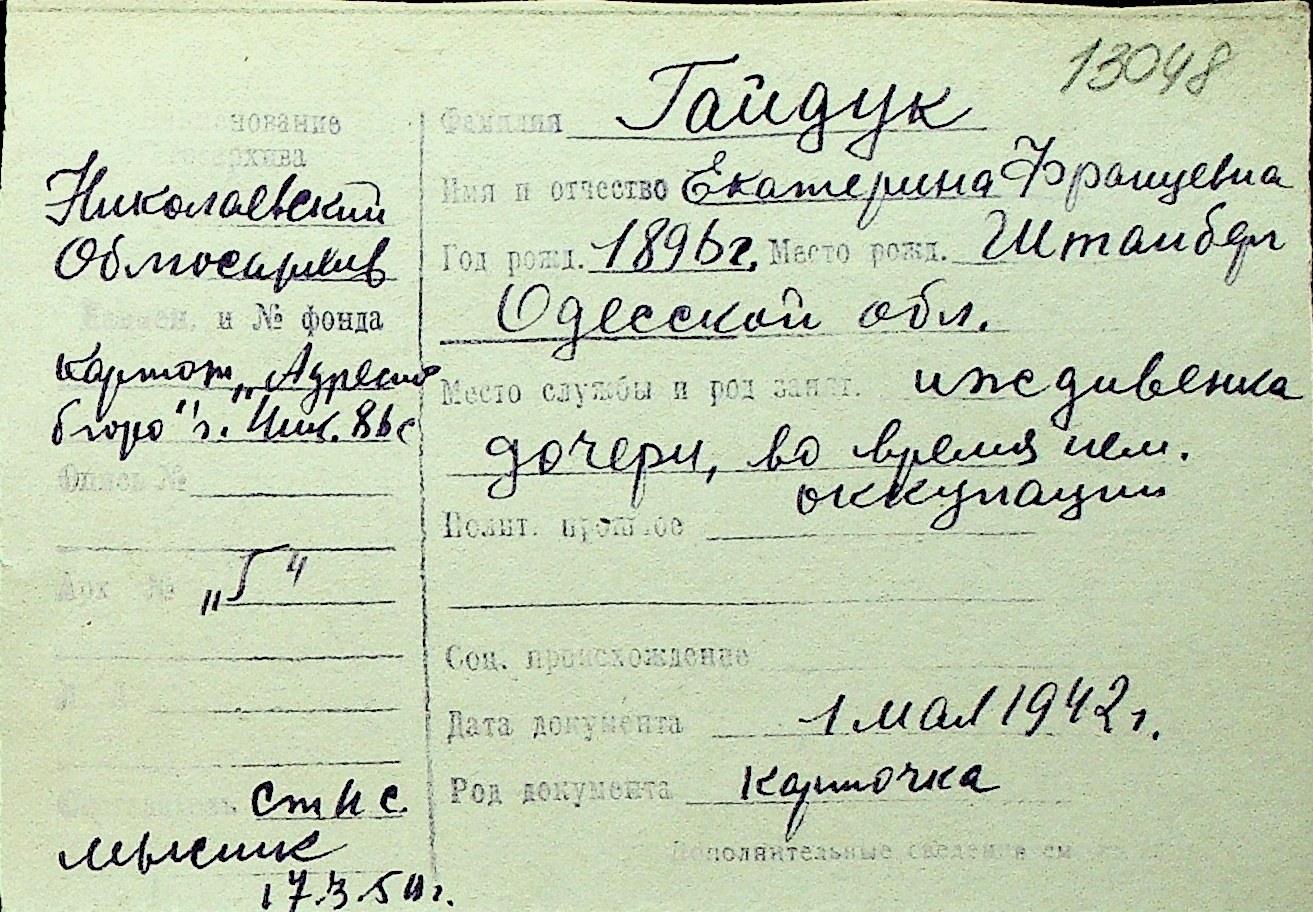 13048
нование
госархива
Николаевский
Облгосархив
и № фонда
Картот. „Адресно
бюро" г. Ник.
Опись №
Арх № „Г"
ст н с.
17.3.50 г.
Фамилия Гайдук
Имя и отчество Екатерина Францевна
Год рожд. 1896 г. Место рожд.
Одесской обл.
Место службы и род занят. иждивенка
дочери, во время нем.
оккупации
Полит. прошлое
Соц. происхождение
Дата документа 1 мая 1942 г.
Род документа карточка
Дополнительные сведения см